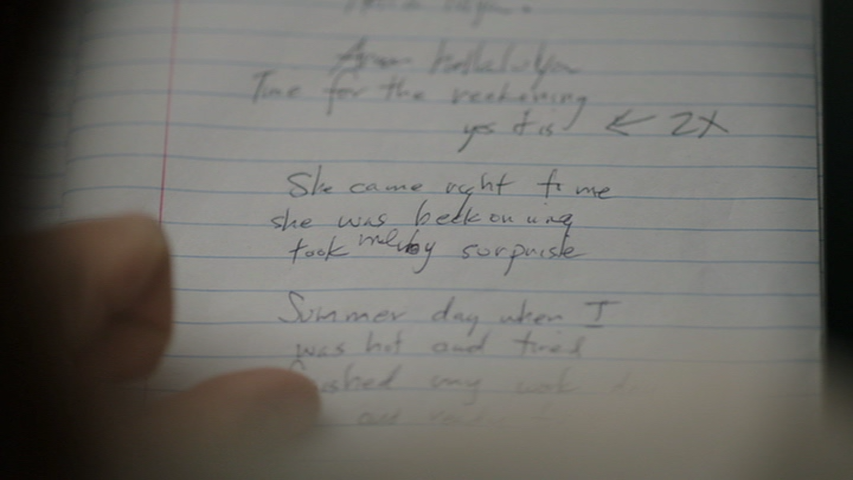 Time for the reckoning
yes it is ← 2X
She came right to me
she was beckoning
took me by surprise
Summer day when I
was hot and tired
my
and